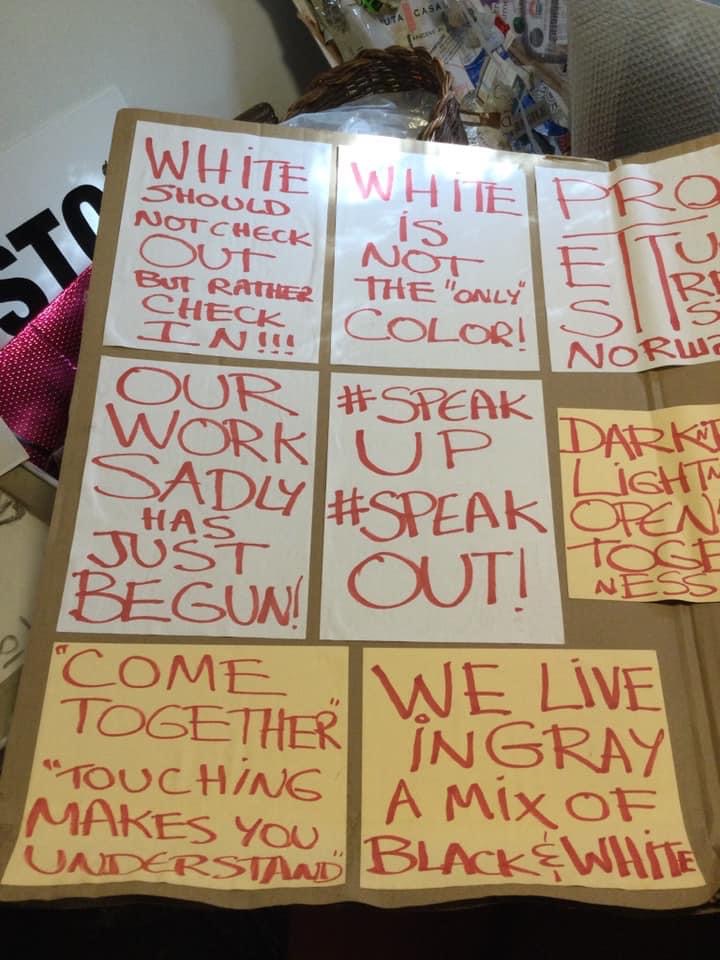 CASA
STO
WHITE
SHOULD
NOT CHECK
OUT
BUT RATHER
CHECK
IN!!!
WHITE
IS
NOT
THE "ONLY"
COLOR!
PRO
OUR
WORK
SADLY
HAS
JUST
BEGUN!
#SPEAK
UP
#SPEAK
OUT!
DARK
LIGHT
OPEN
TOGE
NESS
"COME
TOGETHER"
"TOUCHING
MAKES YOU
UNDERSTAND"
WE LIVE
IN GRAY
A MIX OF
BLACK & WHITE